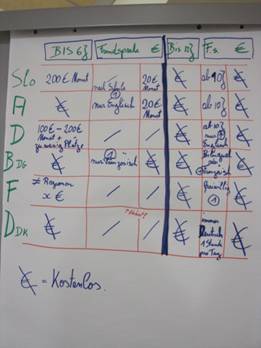 BIS 6J Fremdsprache € Bis 10J Fs €
SLO 200€ Monat nach Schule ① 20€ Monat € ab 9J €
A € nur Englisch 20€ Monat € ab 10J €
D 100€ - 200€ Monat + zu wenig Plätze / / € ab 10J nur Englisch €
BDG € ① nur Französisch / € ① Französisch €
F ≠ Regionen x € / / € freiwillig ① €
DDK € / / € Deutsch 1 Stunde pro Tag €
€ = Kostenlos.